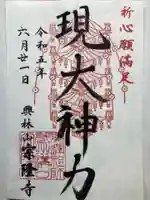 祈心願満足
現大神力
令和五年
六月廿一日
興林山宗隆寺